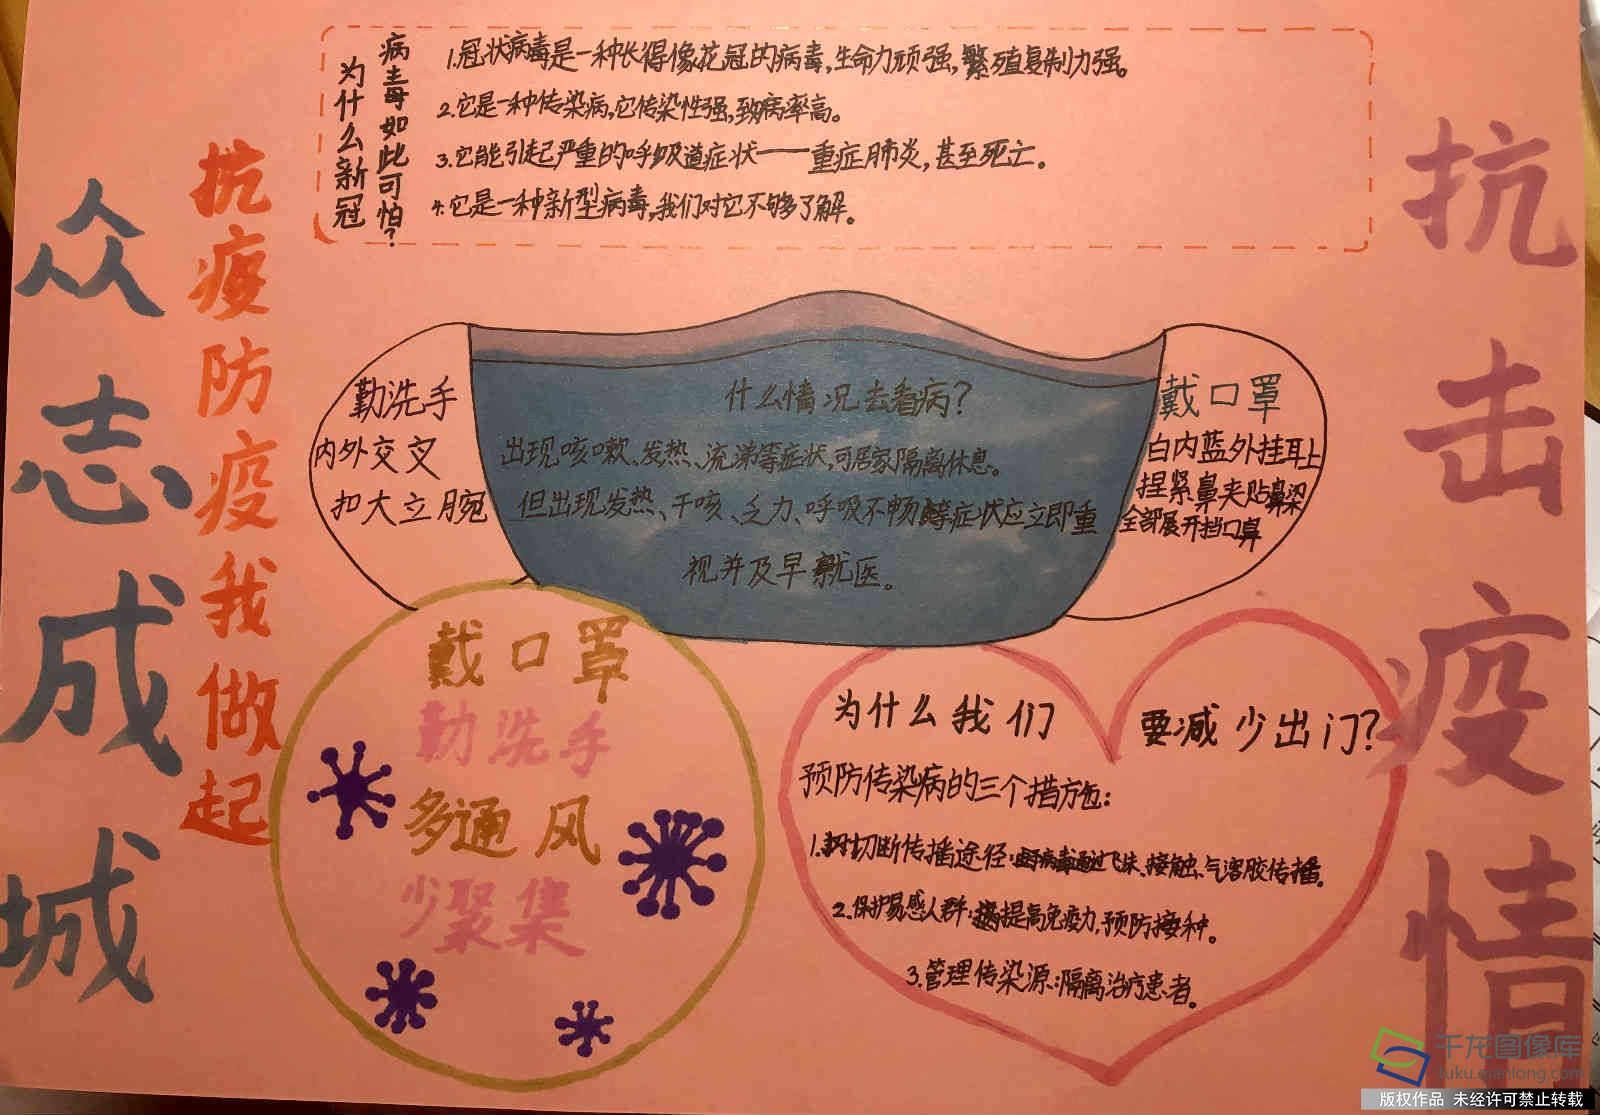 众志成城
抗疫防疫我做起
为什么新冠
病毒如此可怕?
1.冠状病毒是一种长得像花冠的病毒,生命力顽强,繁殖复制力强。
2.它是一种传染病,它传染性强,致病率高。
3.它能引起严重的呼吸道症状——重症肺炎,甚至死亡。
4.它是一种新型病毒,我们对它不够了解。
抗击疫情
勤洗手
内外交叉
扣大立腕
什么情况去看病?
出现咳嗽、发热、流涕等症状,可居家隔离休息。
但出现发热、干咳、乏力、呼吸不畅等症状应立即重
视并及早就医。
戴口罩
白内蓝外挂耳上
捏紧鼻夹贴鼻梁
全部展开挡口鼻
戴口罩
勤洗手
多通风
少聚集
为什么我们
要减少出门?
预防传染病的三个措施:
1.切断传播途径:病毒通过飞沫、接触、气溶胶传播。
2.保护易感人群:提高免疫力,预防接种。
3.管理传染源:隔离治疗患者。
千龙图像库
tuku.qianlong.com
版权作品 未经许可禁止转载